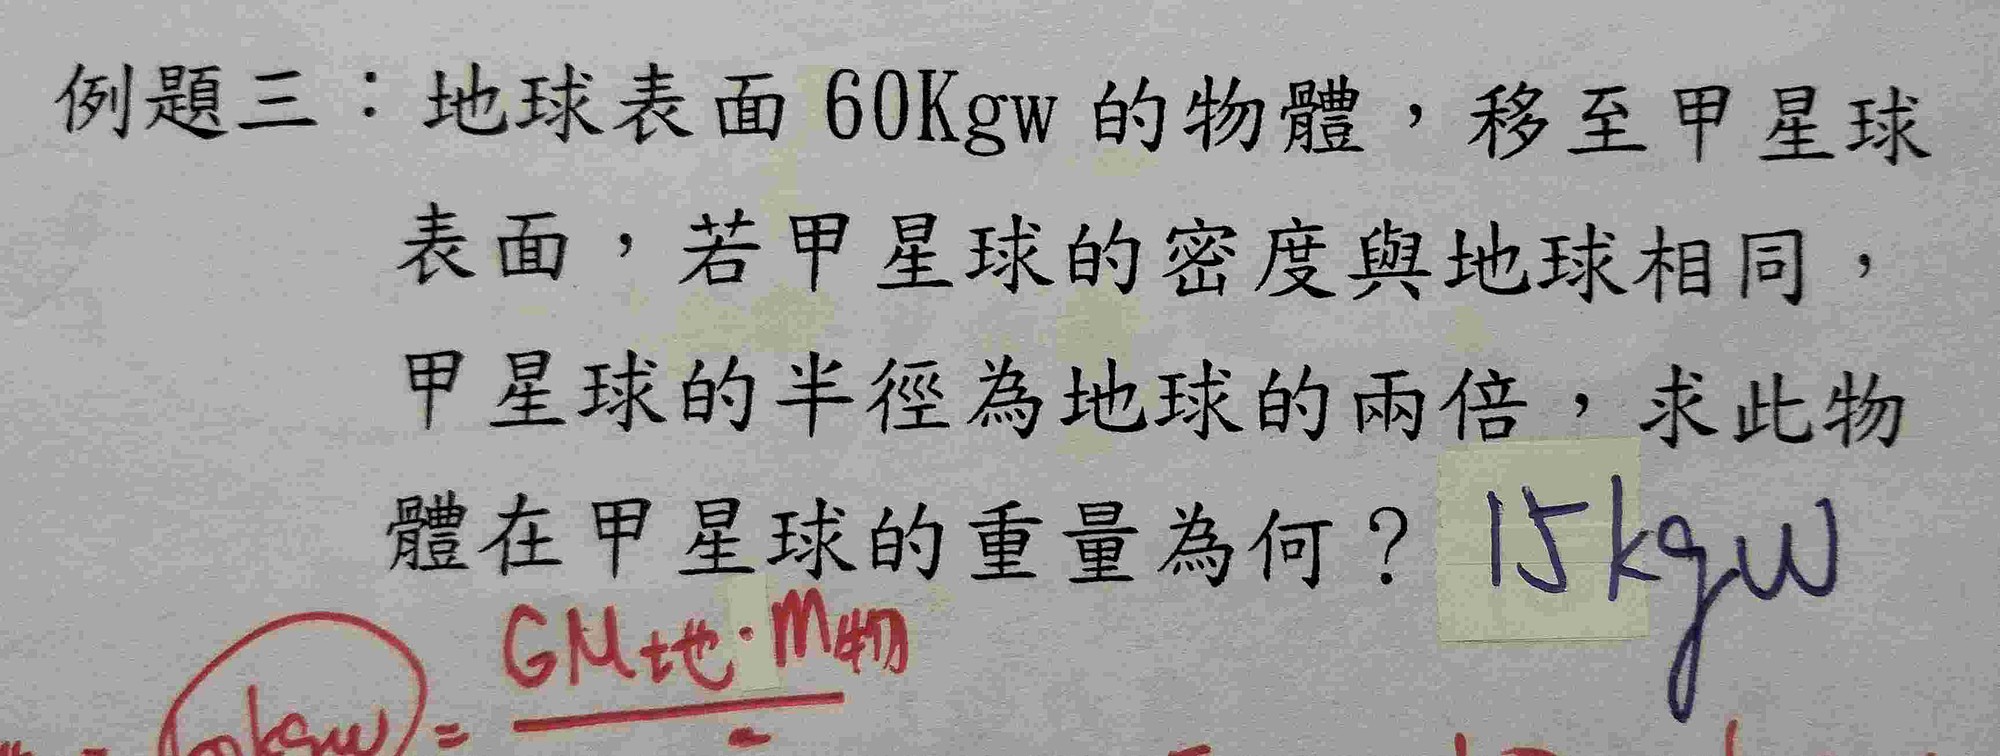 例題三：地球表面 60Kgw 的物體，移至甲星球
表面，若甲星球的密度與地球相同，
甲星球的半徑為地球的兩倍，求此物
體在甲星球的重量為何？ 15kgw
GM地·m物
kgw =